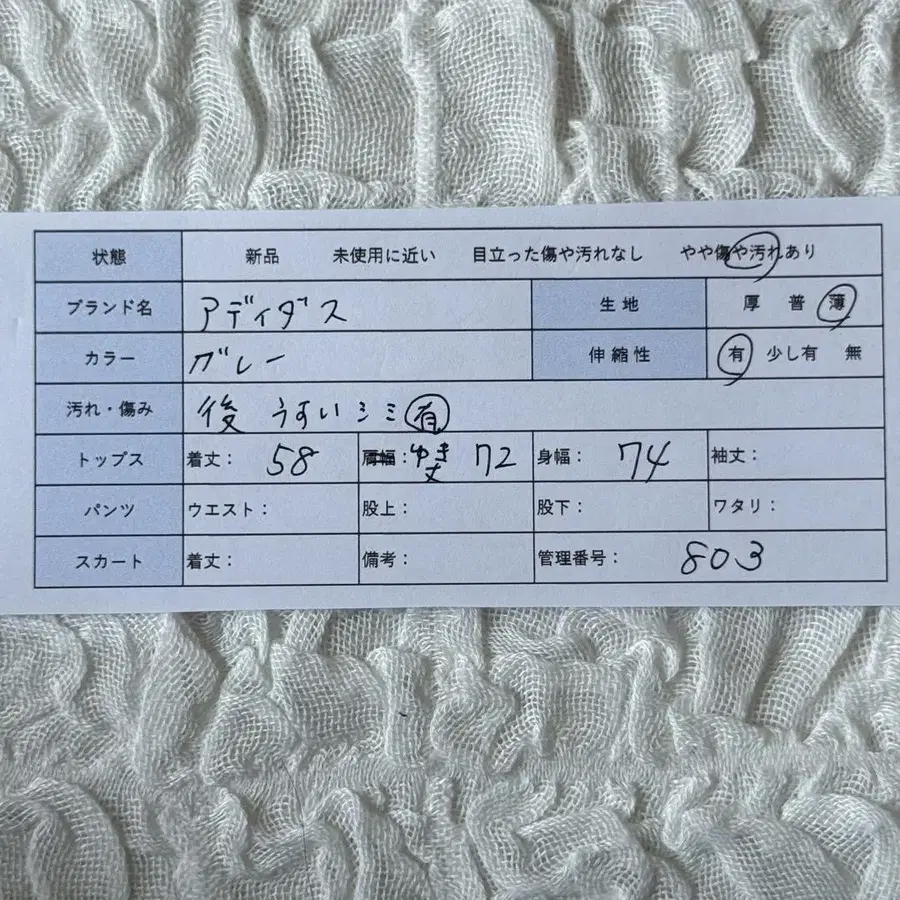 状態 新品 未使用に近い 目立った傷や汚れなし やや傷や汚れあり
ブランド名 アディダス 生地 厚 普 薄
カラー グレー 伸縮性 有 少し有 無
汚れ・傷み 後 うすいシミ 有
トップス 着丈： 58 肩幅：ゆき丈 72 身幅： 74 袖丈：
パンツ ウエスト： 股上： 股下： ワタリ：
スカート 着丈： 備考： 管理番号： 803